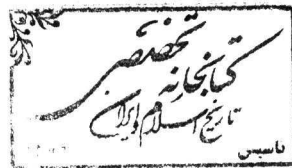 کتابخانه تخصصی
تاریخ اسلام و ایران
تاسیس